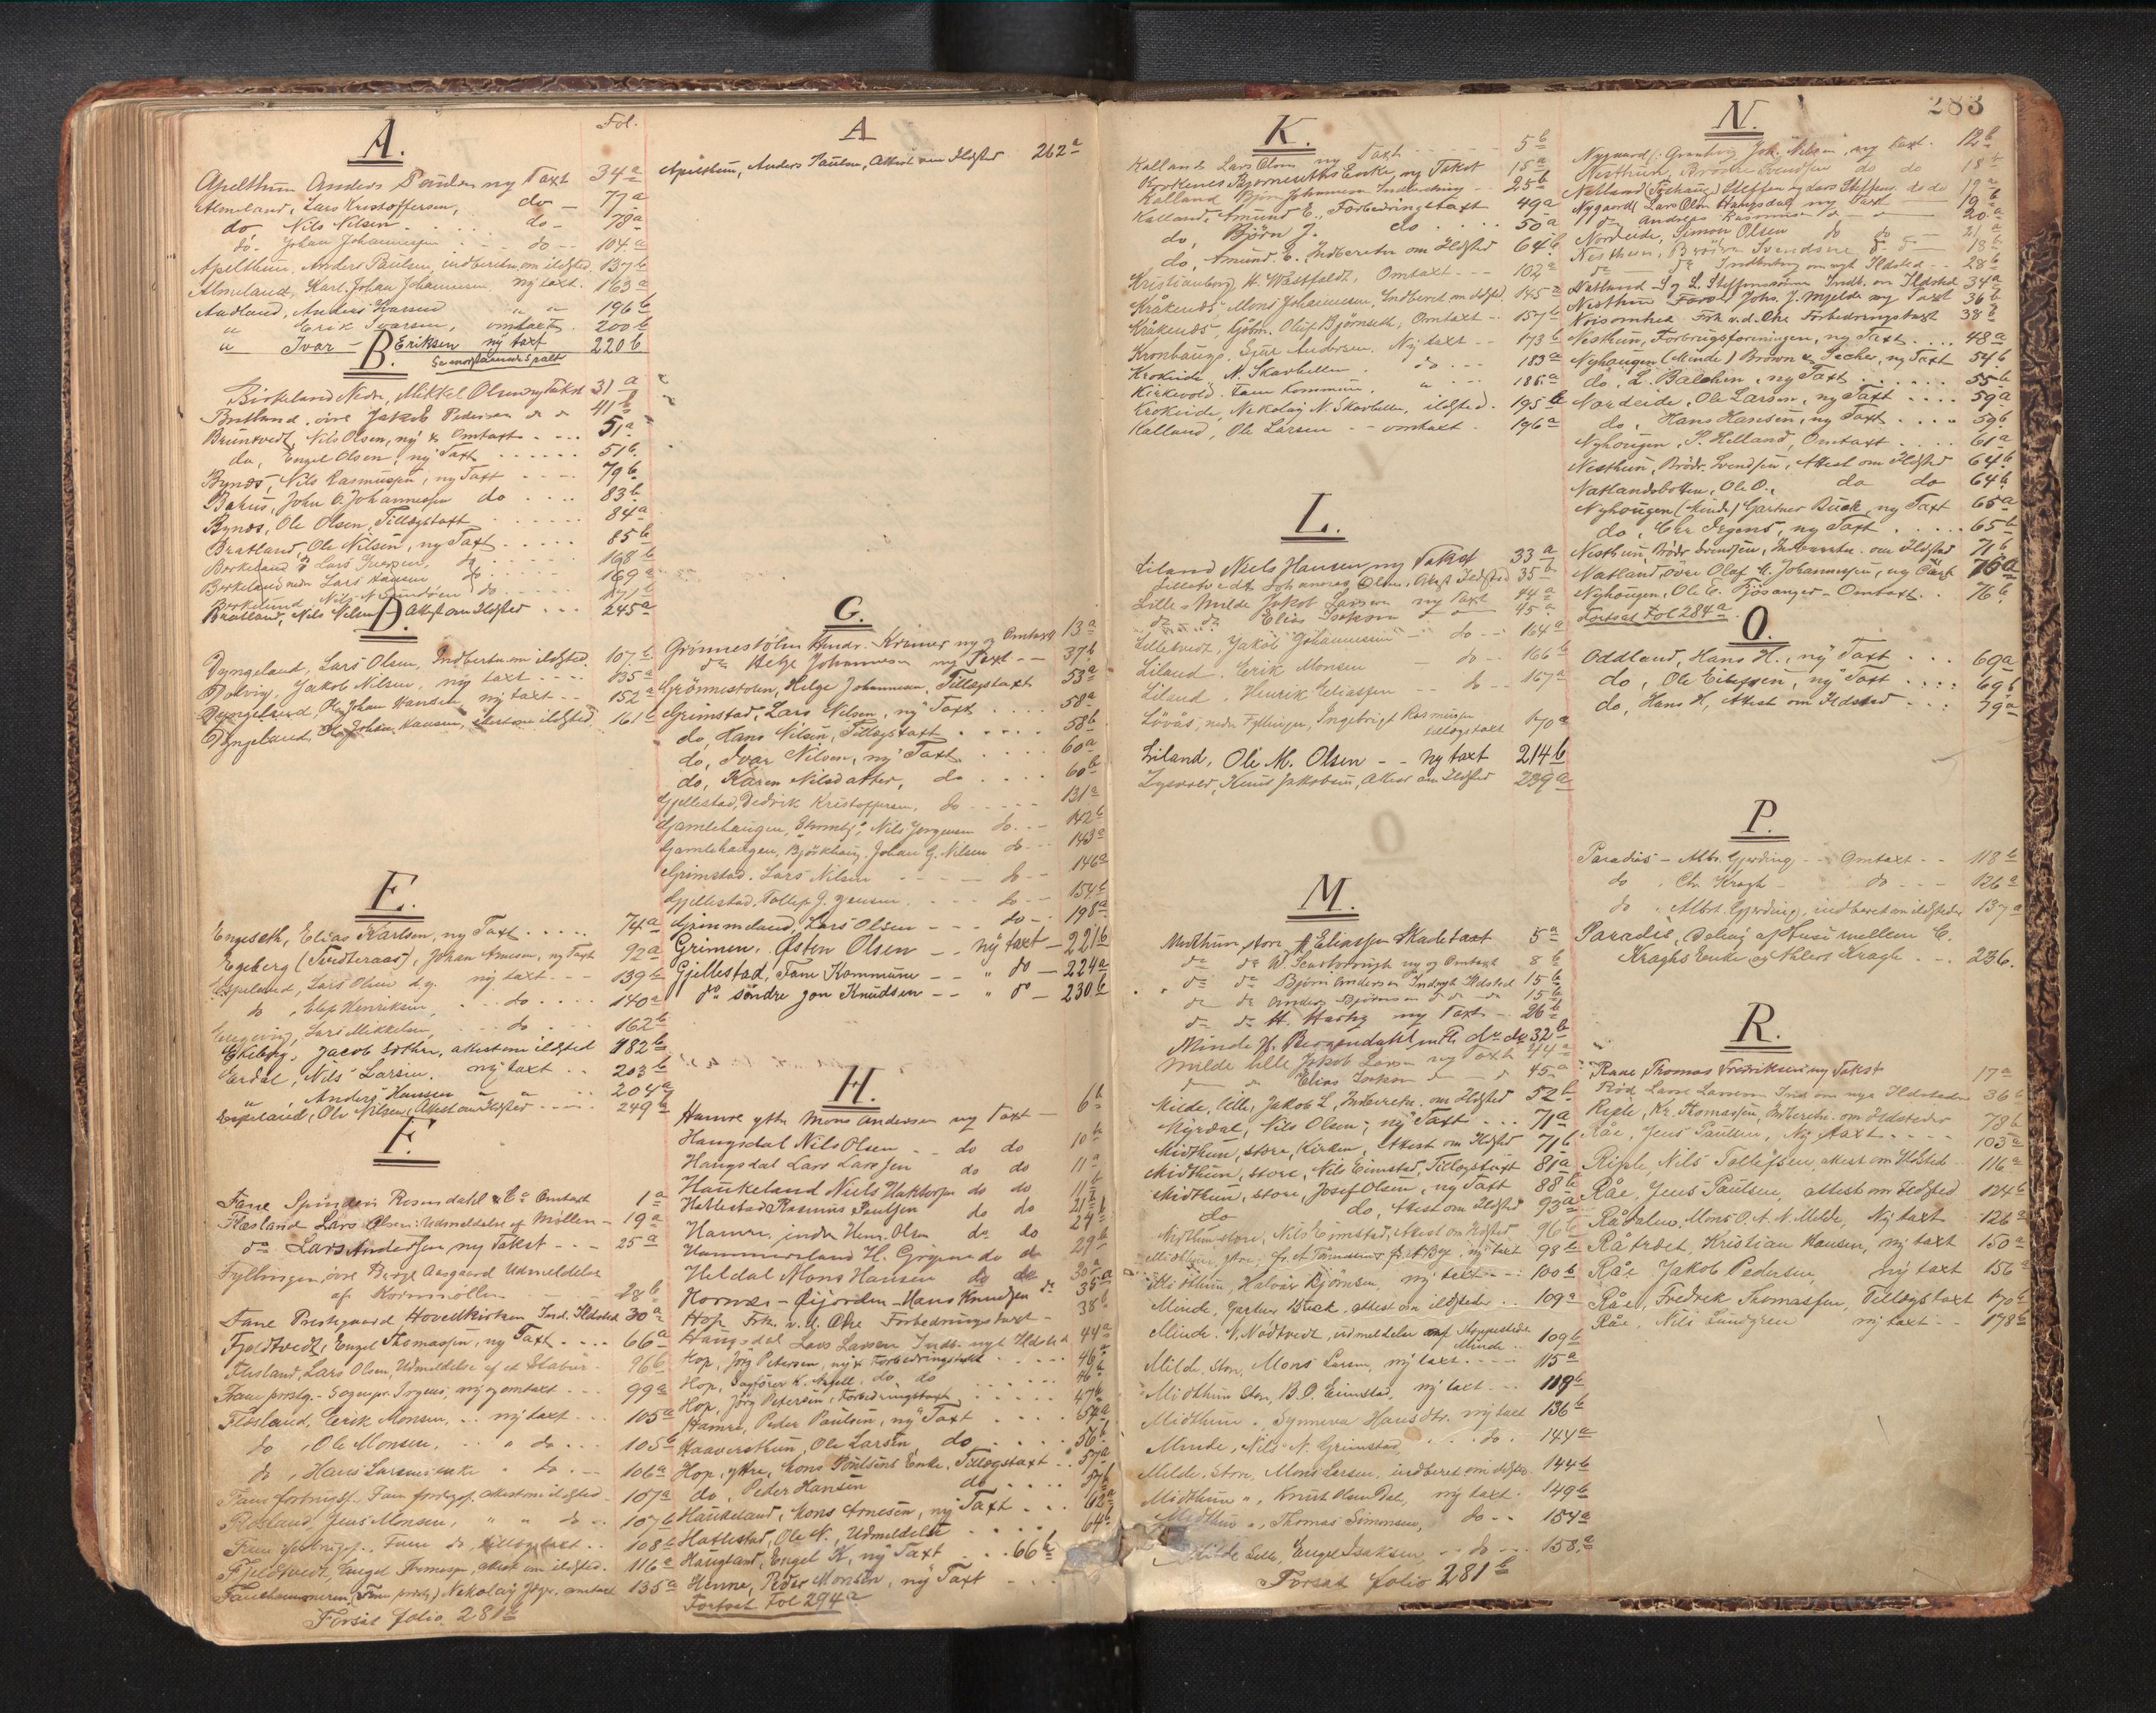 A.
Fol.
Apelthun Anders Paulsen ny Taxt 34a
Almeland, Lars Kristoffersen, do - 77a
do Nils Nilsen . . . do - 78a
do. Johan Johannessen - - do - - 104a
Apelthun. Anders Paulsen, indberetn. om ildsted. 137b
Almeland, Karl Johan Johannessen. ny taxt. 163a
Aadland, Anders Larsen " " 196b
" Erik Ivarsen, omtaxt. 200b
" Ivar - Eriksen ny taxt 220b
B.
Se modstaaende spalt
Birkeland Nedre, Mikkel Olsen ny Takst 31a
Bratland, övre Jakob Pedersen do do 41b
Bruntvedt, Nils Olsen, ny & Omtaxt . . . 51a
do, Engel Olsen, ny Taxt . . . . . 51b
Bynes, Nils Rasmussen, ny Taxt - - - 79b
Bahus, John O. Johannessen do . . . . 83b
Bynes, Ole Olsen, Tillægstaxt . . . . 84a
Bratland, Ole Nilsen, ny Taxt . . . . . 85b
Birkeland Lars Iversen, do . . . . 168b
Birkeland nedre Lars Hansen do . . . . 169a
Birkeland Nils N. do . . . 171b
Bratland, Nils Nilsen - Attest om Ildsted . . . 245a
D.
Dyngeland, Lars Olsen, Indberetn. om ildsted. 107b
Dolvig, Jakob Nilsen. ny taxt . . . . 135a
Dyngeland, Ole Johan Hansen ny taxt - - 152a
Dyngeland, Ole Johan Hansen, attest om ildsted. 161b
E.
Engeseth, Elias Karlsen, ny Taxt . . . . . 74a
Egeberg (Tvedteraas), Johan Arnesen, ny Taxt 92a
Espeland, Lars Olsen d.y. ny taxt - - - 139b
do, Elef Henriksen, . . do . . . . 140a
Lars Mikkelsen, - - do . . . . 162b
Ekeberg, Jacob Sothn, attest om ildsted 182b
Erdal, Nils Larsen. ny taxt . . 203b
" Anders Hanssen " " . . 204a
Espeland, Ole Nilsen, Attest om Ildsted - - - - 249b
F.
Fane Spinderi Rosendahl & Co Omtaxt 1a
Flæsland Lars Olsen: Udmeldelse af Møllen - 19a
do Lars Andersen, ny Takst - . - 25a
Fyllingen, övre Berge Aasgaard Udmeldelse
af Kornmøllen - - - - 28b
Fane Prestegaard Hovedkirken Ind. Ildsted 30a
Fjeldtvedt, Engel Thomassen, ny Taxt . . . . 66a
Flæsland, Lars Olsen, Udmeldelse af et Stabur - 96b
Fane prestg. - Sogenpr. Irgens, ny og omtaxt . . . 99a
Flæsland, Erik Monsen, . . ny taxt . . . 105a
do, Ole Monsen, . . " do . . . 105b
do, Hans Larsens enke " do . . . 106a
Fane forbrugsf. Fane forbrugsf. attest om ildsted - 107a
Flæsland, Jens Monsen, " " do . . 107b
Fane forbrugsf. . Fane do, tillægstaxt . . 108b
Fjeldtvedt, Engel Thomassen, attest om ildsted. 116a
(Fane prestg) Nikolay omtaxt 135a
Forsat folio. 281b
A
Apelthun, Anders Paulsen, Attest om Ildsted 262a
G.
Grønnestølen Andr. Krämer ny og Omtaxt 13a
do Helge Johannesen ny Taxt - - 37b
Grönnestolen, Helge Johannesen, Tillægstaxt 53a
Grimstad, Lars Nilsen, ny Taxt . . . . 58a
do, Hans Nilsen, Tillægstaxt . . . . . 58b
do, Ivar Nilsen, ny Taxt . . . . 60a
do, Karen Nilsdatter, do . . . . 60b
Gjellestad, Dedrik Kristoffersen, do . . . . . 131a
Gamlehaugen, Nils Jørgensen do. . - 142b
Gamlehaugen, Björkhaug. Johan G. Nilsen do - - - 143a
Grimstad. Lars Nilsen . . . . do - - 146a
Gjellestad, Tollef J. Jensen. . . . do - - 154b
Grimmeland, Lars Olsen - - - do - - 198a
Grimen, Østen Olsen - - ny taxt - 221b
Gjellestad, Fane Kommune - - " do - 224a
do söndre Jon Knudsen - - " do - 230b
H.
Hamre ytre Mons Andersen ny Taxt - 6b
Haugsdal Nils Olsen - - do do 10b
Haugsdal Lars Larsen do do 11a
Haukeland Niels Haktorsen do do 11b
Hatlestad Rasmus Paulsen do do 21b
Hamre, indre Hans Olsen do do 24b
Hammersland H. do do 29b
Heldal Mons Hansen do do 30a
Hornes - Øijorden - Hans Knudsen do 35a
Hop Frk. v. d. Ohe Forbedringstaxt - 38b
Haugsdal Lars Larsen Indb. nyt Ildsted 44a
Hop, Jörg Petersen, ny & Forbedringstaxt . . . . 46a
Hop, Sagfører K. do do . . . . 46b
Hop, Jörg Petersen, Forbedringstaxt . . . . 47b
Hamre, Peder Paulsen, ny Taxt . . . . 54a
Haaversthun, Ole Larsen, do . . . . 56b
Hop, ytre, Mons Poulsens Enke, Tillægstaxt . . 57a
do, Peder Hansen do . . . . 57b
Haukeland, Mons Arnesen, ny Taxt . . . 62a
Hatlestad, Ole N., Udmeldelse . . . . 64b
Haugland, Engel K, ny Taxt . . . 66b
Henne, Peder Monsen, ny Taxt - -
Fortsat fol 294a
283
K.
Kalland Lars Olsen ny Taxt - - - - 5b
Korskenes Bjørnsseths Enke, ny Takst 15a
Kalland Björn Johannesen Indberetning - - 25b
Kalland, Amund E., Forbedringstaxt 49a
do, Björn J. do . . . . 50a
do, Amund E. Indberetn om Ildsted 64b
Kristianborg, H. Wastfaldt, Omtaxt - - - 102a
Kråkenes, Mons Johannesen, Indberet om ildsted. 145a
Kråkenes, Gjötn. Oluf Björnseth, Omtaxt - - 157b
Kronhaug. Sjur Andersen. Ny taxt - - 173b
Krokeide, N. Skarbellen . do - - - 183a
Kirkevold. Fane Kommune, " - - - 186a
Krokeide, Nikolay N. Skarbellen, ildsted. 195b
Kalland, Ole Larsen - - omtaxt. 196a
L.
Liland Niels Hansen ny Takst 33a
Lilletvedt Johannes Olsen, Attest Ildsted 35b
Lille Milde Jakob Larsen ny Taxt 44a
do do Elias Isaksen - - 45a
Lilletvedt, Jakob Johannessen - do - - 164a
Liland. Erik Monsen - do - - 166b
Liland. Henrik Eliassen - - do - - 167a
Lövås, nedre Fyllingen, Ingebrigt Rasmussen
tillægstaxt 170a
Liland, Ole M. Olsen - - ny taxt 214b
Lysevold, Knud Jakobsen, Attest om Ildsted 239a
M.
Midthun store A Eliassen Skadetaxt 5a
do do W. Scarborough ny og Omtaxt 8b
do do Björn Andersen Indregt Ildsted 15b
do do Anders Björnsen do do 15b
do do H. Hartig ny Taxt - 26b
Minde H. Bergendahl m Fl. do do 32b
Milde lille Jakob Larsen ny Taxt 44a
do Elias Isaksen - - 45a
Milde, lille, Jakob L, Indberetn. om Ildsted 52b
Myrdal, Nils Olsen, ny Taxt . . . 71a
Midthun, store, Kirken, Attest om Ildsted 71b
Midthun, store, Nils Eimstad, Tillægstaxt 81a
Midthun, store, Josef Olsen, ny Taxt 88b
do do, Attest om Ildsted 93a
Midthun store, Nils Eimstad, Attest om Ildsted 96b
Midthun, store, ny taxt 98b
Midthun, Halvor Björnsen, ny taxt - - : 100b
Minde, gartner Buck, attest om ildsteder . . 109a
Minde. N. Nödtvedt, udmeldelse af Stoppested
Minde. 109b
Milde, store, Mons Larsen, ny taxt . - - - 115a
Midthun store, B. O. Eimstad, ny taxt . - - 119b
Midthun ", Synneva Hansdtr. ny taxt 136b
Minde, Nils N. Grimstad, . . . do . . 144a
Milde, store, Mons Larsen, indberet om ildsted. 144b
Midthun ", Knut Olsen Dal, ny taxt . 149b
Midthun ", Thomas Simonsen, do - - 154a
Milde Lille, Engel Isaksen, - - do - - - 158a
Forsat folio 281b
N.
Nygaard Joh. Nilsen, ny Taxt. 12b
Nesthun, Brödre Svendsen do do 18b
Natland Steffen og Lars Steffens. do do 19a
Nygaard Lars Olsen Haugsdal ny Taxt 19b
do Andreas Rasmussen do - - 20a
Nordeide, Simon Olsen do do - 21a
Nesthun, Brödre Svendsens do do - 18b
do - do Indbetng om nyt Ildsted - - 28b
Natland S og L Steffensønner Indb. om Ildsted 34a
Nesthun Johs. J. Mjelde ny Taxt 36b
Noisomhed Frk v. d. Ohe Forbedringstaxt 38b
Nesthun, Forbrugsforeningen, ny Taxt . . . . 48a
Nyhaugen (Minde) Brown & Pecher, ny Taxt 54b
do, L. Balchen, ny Taxt . . . . . . 55b
Nordeide, Ole Larsen, ny Taxt . . . . 59a
do, Hans Hansen, ny Taxt . . . . 59b
Nyhougen, P. Helland, Omtaxt . . . . 61a
Nesthun, Brödr. Svendsen, Attest om Ildsted 64b
Natlandsbotten, Ole O., do do 64b
Nyhougen (Minde) Gartner Buck, ny Taxt 65a
do, Chr Irgens, ny Taxt . . . . . 65b
Nesthun, Brödr. Svendsen, Indberetn. om Ildsted 71b
Natland, övre Olaf M. Johannessen, ny Taxt 75a
Nyhougen, Ole E. Fjösanger - Omtaxt . . 76b
Fortsat Fol 284a
O.
Oddland, Hans H., ny Taxt . . . 69a
do, Ole Eilefsen, ny Taxt . . . . 69b
do, Hans H, Attest om Ildsted . . : 79a
P.
Paradis - Albr. Gjerding - - Omtaxt - - 118b
do . Chr Kragh - do - - - 126a
do . Albrt. Gjerding, indberet om ildsteder 137a
Paradis, Deling af Husi mellem C.
Kraghs Enke og Ahlert Kragh . - . 236.
R.
Rane Thomas Fredriksen ny Takst 17a
Röd Lars Larssen Ind om nye Ildsteder 36b
Riple, Kr. Thomassen, Indberetn. om Ildsteder 78b
Råe, Jens Paulsen, Ny taxt - - - - 103a
Riple, Nils Tollefsen, attest om Ildsted - 116a
Råe, Jens Paulsen, attest om Ildsted 124b
Mons O. A. N. Milde, Ny taxt 126a
Råtræet, Kristian Hansen, ny taxt 150a
Råe Jakob Pedersen, ny taxt 156a
Råe, Fredrik Thomassen, Tillægstaxt 170b
Råe, Nils Lundgren ny taxt - - 178b